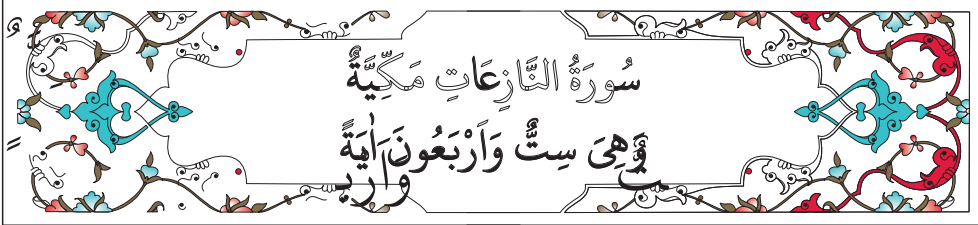 سُورَةُ النَّازِعَاتِ مَكِّيَّةٌ
وَهِىَ سِتٌّ وَاَرْبَعُونَ اٰيَةً